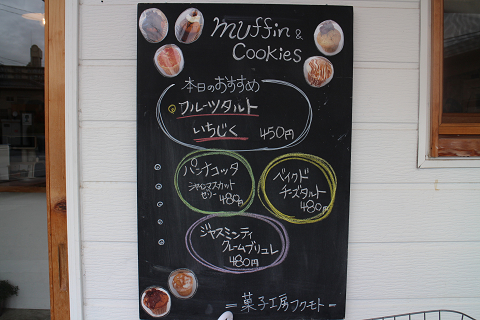 muffin &
Cookies
本日のおすすめ
フルーツタルト
いちじく 450円
パンナコッタ
シャインマスカット
ゼリー 480円
ベイクド
チーズタルト
480円
ジャスミンティ
クレームブリュレ
480円
＝菓子工房フクモト＝